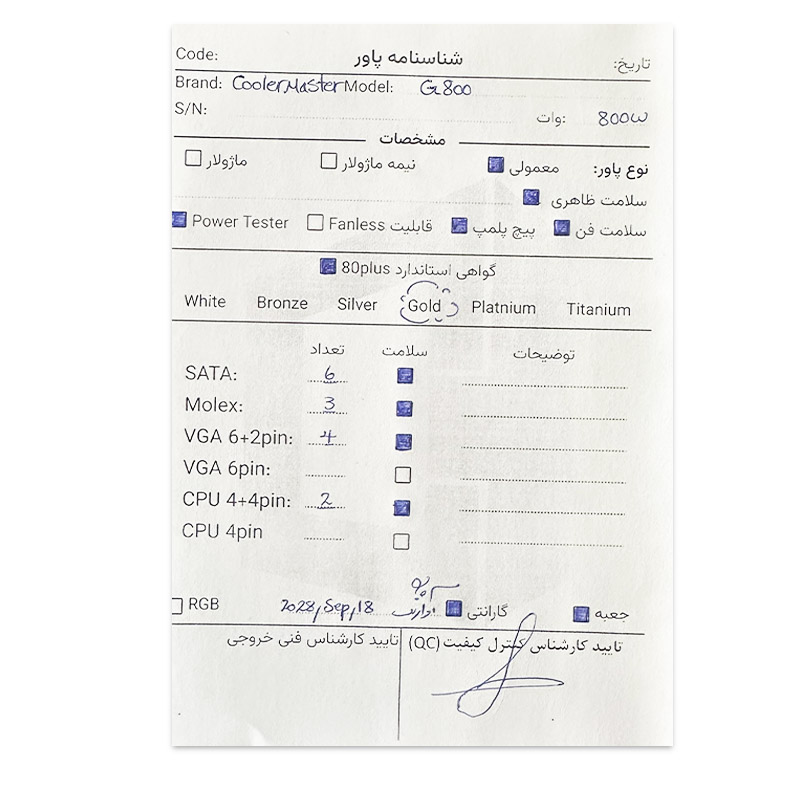 Code: شناسنامه پاور تاریخ:
Brand: CoolerMaster Model: G800
S/N: وات: 800W
مشخصات
نوع پاور: معمولی نیمه ماژولار ماژولار
سلامت ظاهری
سلامت فن پیچ پلمپ قابلیت Fanless Power Tester
گواهی استاندارد 80plus
White Bronze Silver Gold Platnium Titanium
تعداد سلامت توضیحات
SATA: 6
Molex: 3
VGA 6+2pin: 4
VGA 6pin:
CPU 4+4pin: 2
CPU 4pin
جعبه گارانتی 2028,Sep,18 RGB
تایید کارشناس کنترل کیفیت (QC) تایید کارشناس فنی خروجی